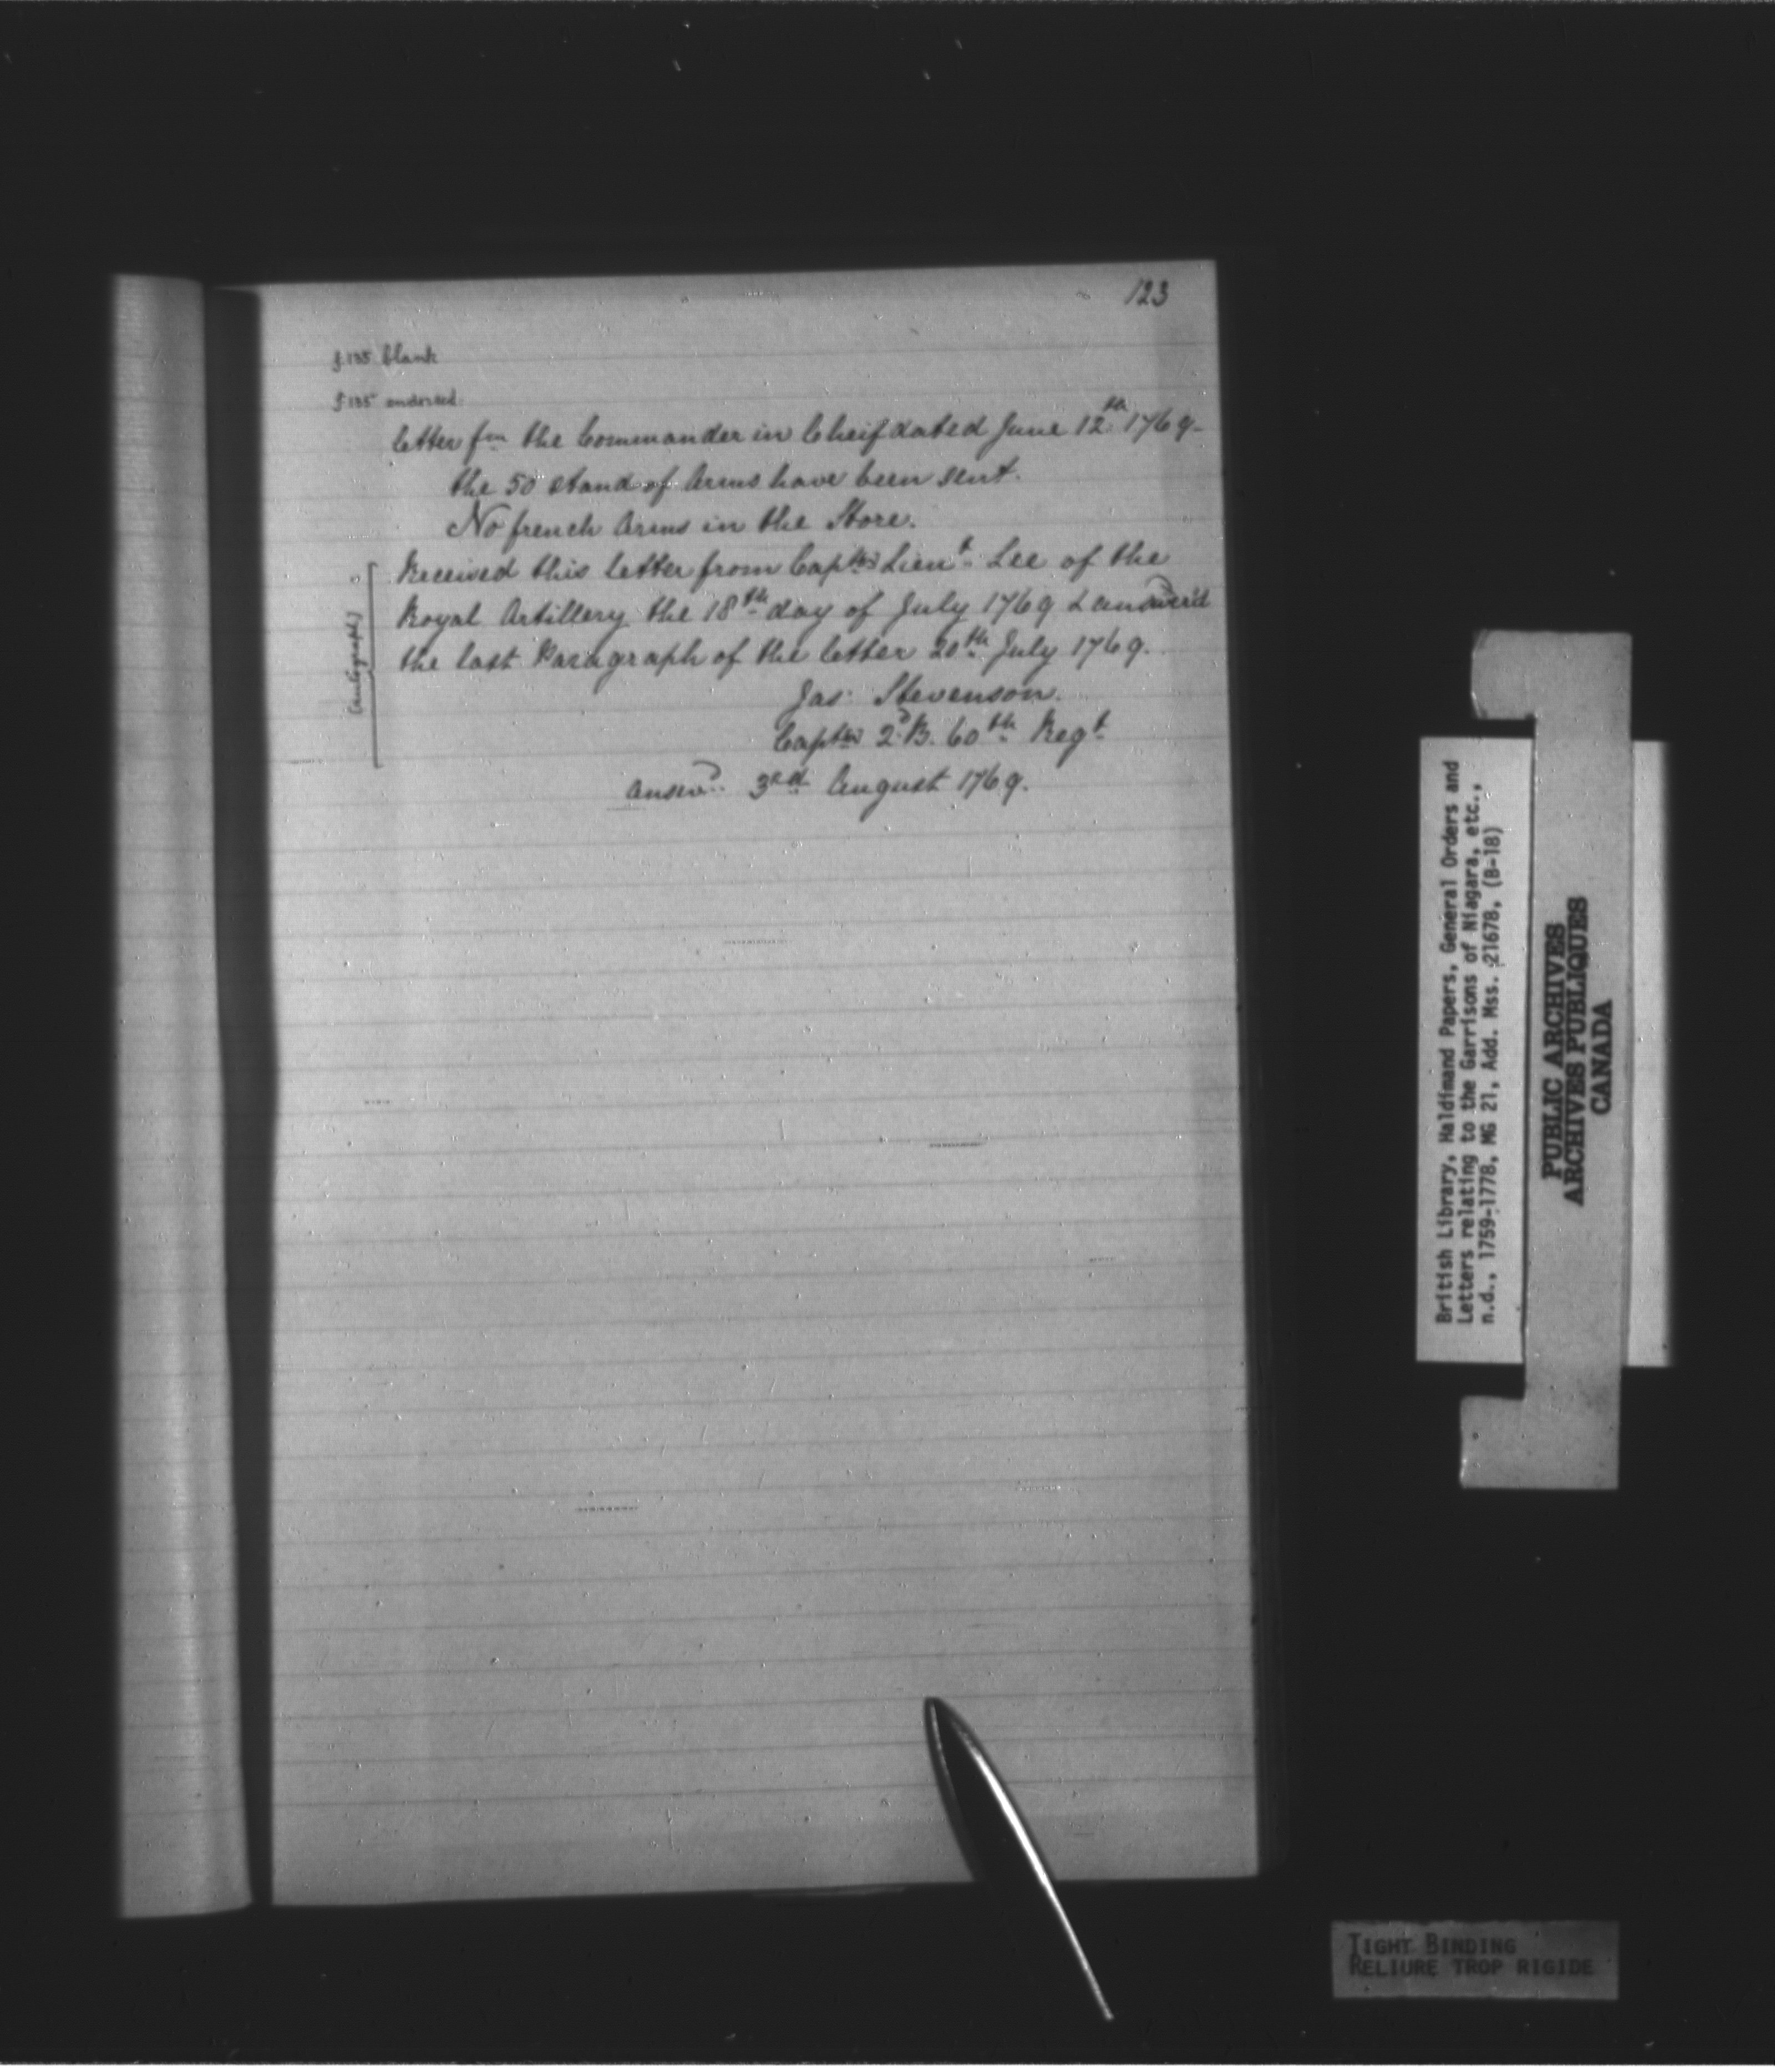 123
f. 135 blank
f. 135 endorsed.
letter fm the Commander in Cheif dated June 12th 1769.
the 50 stand of Arms have been sent.
No french Arms in the Store.
(autograph)
Received this letter from Captn Lieut Lee of the
Royal Artillery the 18th day of July 1769 & answer'd
the last Paragraph of the letter 20th July 1769.
Jas. Stevenson.
Captn 2d B. 60th Regt
answd. 3rd August 1769.
British Library, Haldimand Papers, General Orders and
Letters relating to the Garrisons of Niagara, etc.,
n.d., 1759-1778, MG 21, Add. Mss. 21678, (B-18)
PUBLIC ARCHIVES
ARCHIVES PUBLIQUES
CANADA
TIGHT BINDING
RELIURE TROP RIGIDE